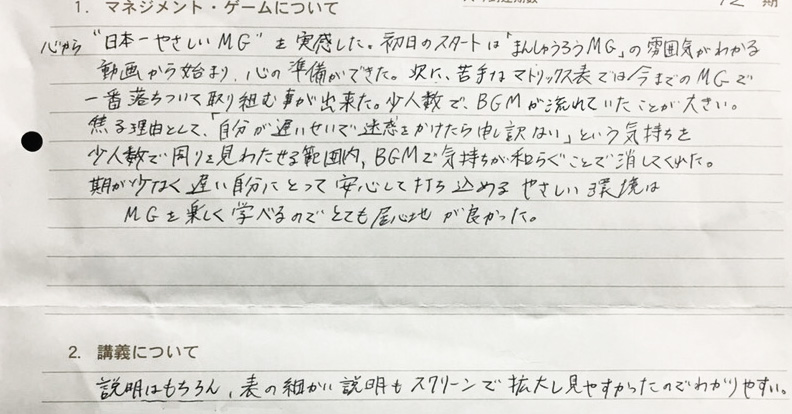 1. マネジメント・ゲームについて
12 期
心から "日本一やさしいMG" を実感した。初日のスタートは「まんしゅうろうMG」の雰囲気がわかる
動画から始まり、心の準備ができた。次に、苦手なマトリックス表では今までのMGで
一番落ちついて取り組む事が出来た。少人数で、BGMが流れていたことが大きい。
焦る理由として、「自分が遅いせいで迷惑をかけたら申し訳ない」という気持ちを
少人数で周りを見わたせる範囲内、BGMで気持ちが和らぐことで消してくれた。
期が少なく遅い自分にとって安心して打ち込めるやさしい環境は
MGを楽しく学べるのでとても居心地が良かった。
2. 講義について
説明はもちろん、表の細かい説明もスクリーンで拡大し見やすかったのでわかりやすい。